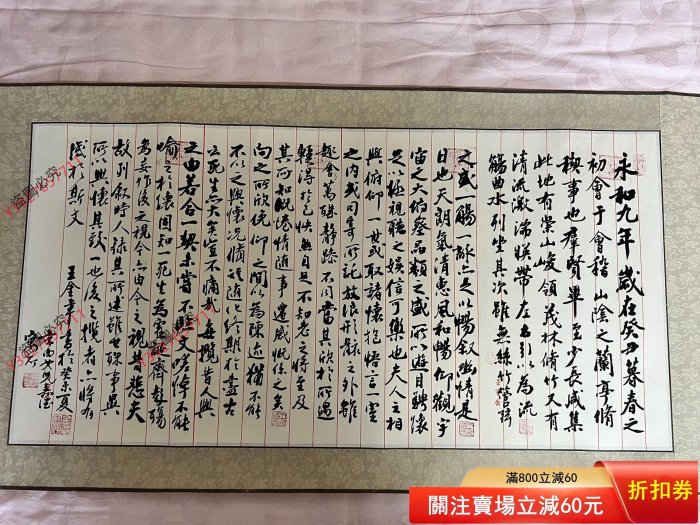 永和九年歲在癸丑暮春之
初會于會稽山陰之蘭亭脩
禊事也群賢畢至少長咸集
此地有崇山峻領茂林脩竹又有
清流激湍映帶左右引以為流
觴曲水列坐其次雖無絲竹管弦
之盛一觴一詠亦足以暢敘幽情是
日也天朗氣清惠風和暢仰觀宇
宙之大俯察品類之盛所以遊目騁懷
足以極視聽之娛信可樂也夫人之相
與俯仰一世或取諸懷抱悟言一室
之內或因寄所託放浪形骸之外雖
趣舍萬殊靜躁不同當其欣於所遇
暫得於己快然自足不知老之將至及
其所之既惓情隨事遷感慨係之矣
向之所欣俛仰之間以為陳迹猶不能
不以之興懷況脩短隨化終期於盡古
云死生亦大矣豈不痛哉每攬昔人興
之由若合一契未嘗不臨文嗟悼不能
喻之於懷固知一死生為虛誕齊彭殤
為妄作後之視今亦由今之視昔悲夫
故列敘時人錄其所述雖世殊事異
所以興懷其致一也後之攬者亦將有
感於斯文
書於癸未夏
滿800立減60
關注賣場立減60元
折扣券